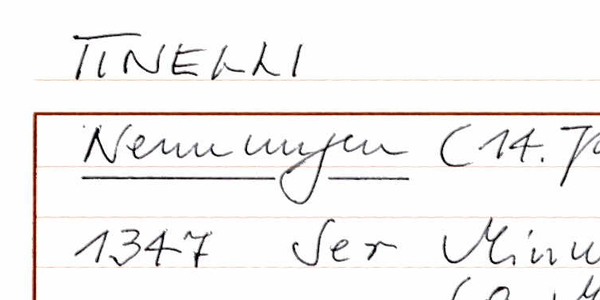 TINELLI
Nennungen (14.
1347 Ser Minu